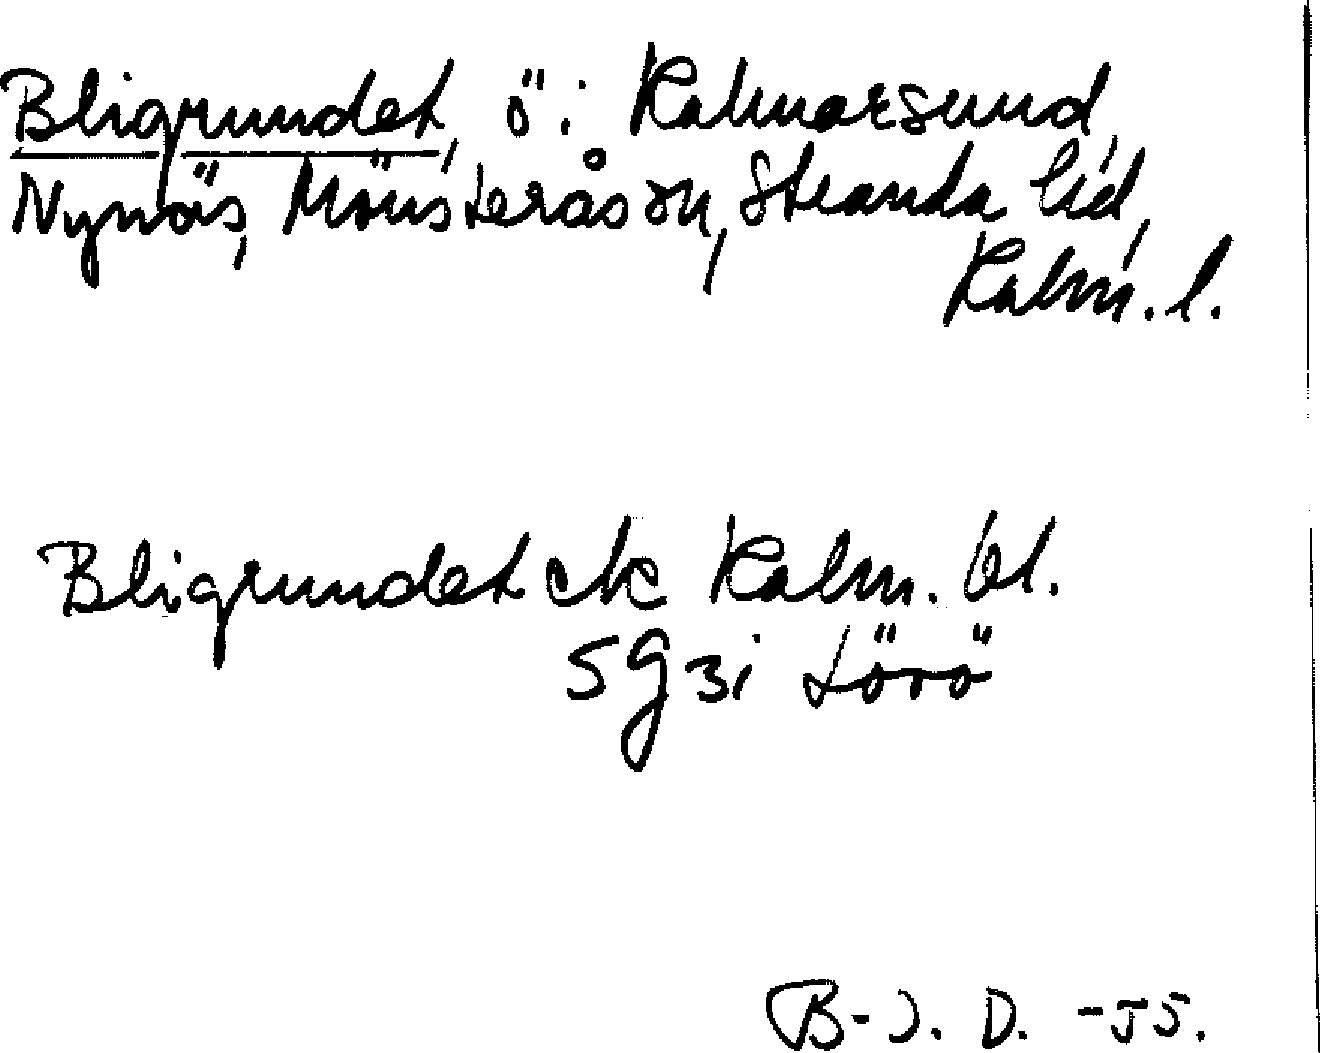 Bligrundet, ö i Kalmarsund,
Nynäs, Mönsterås sn, Stranda hd,
Kalm. l.
Bligrundet ek Kalm. bl.
5 g 3 i Lövö
B-J. D. -55.